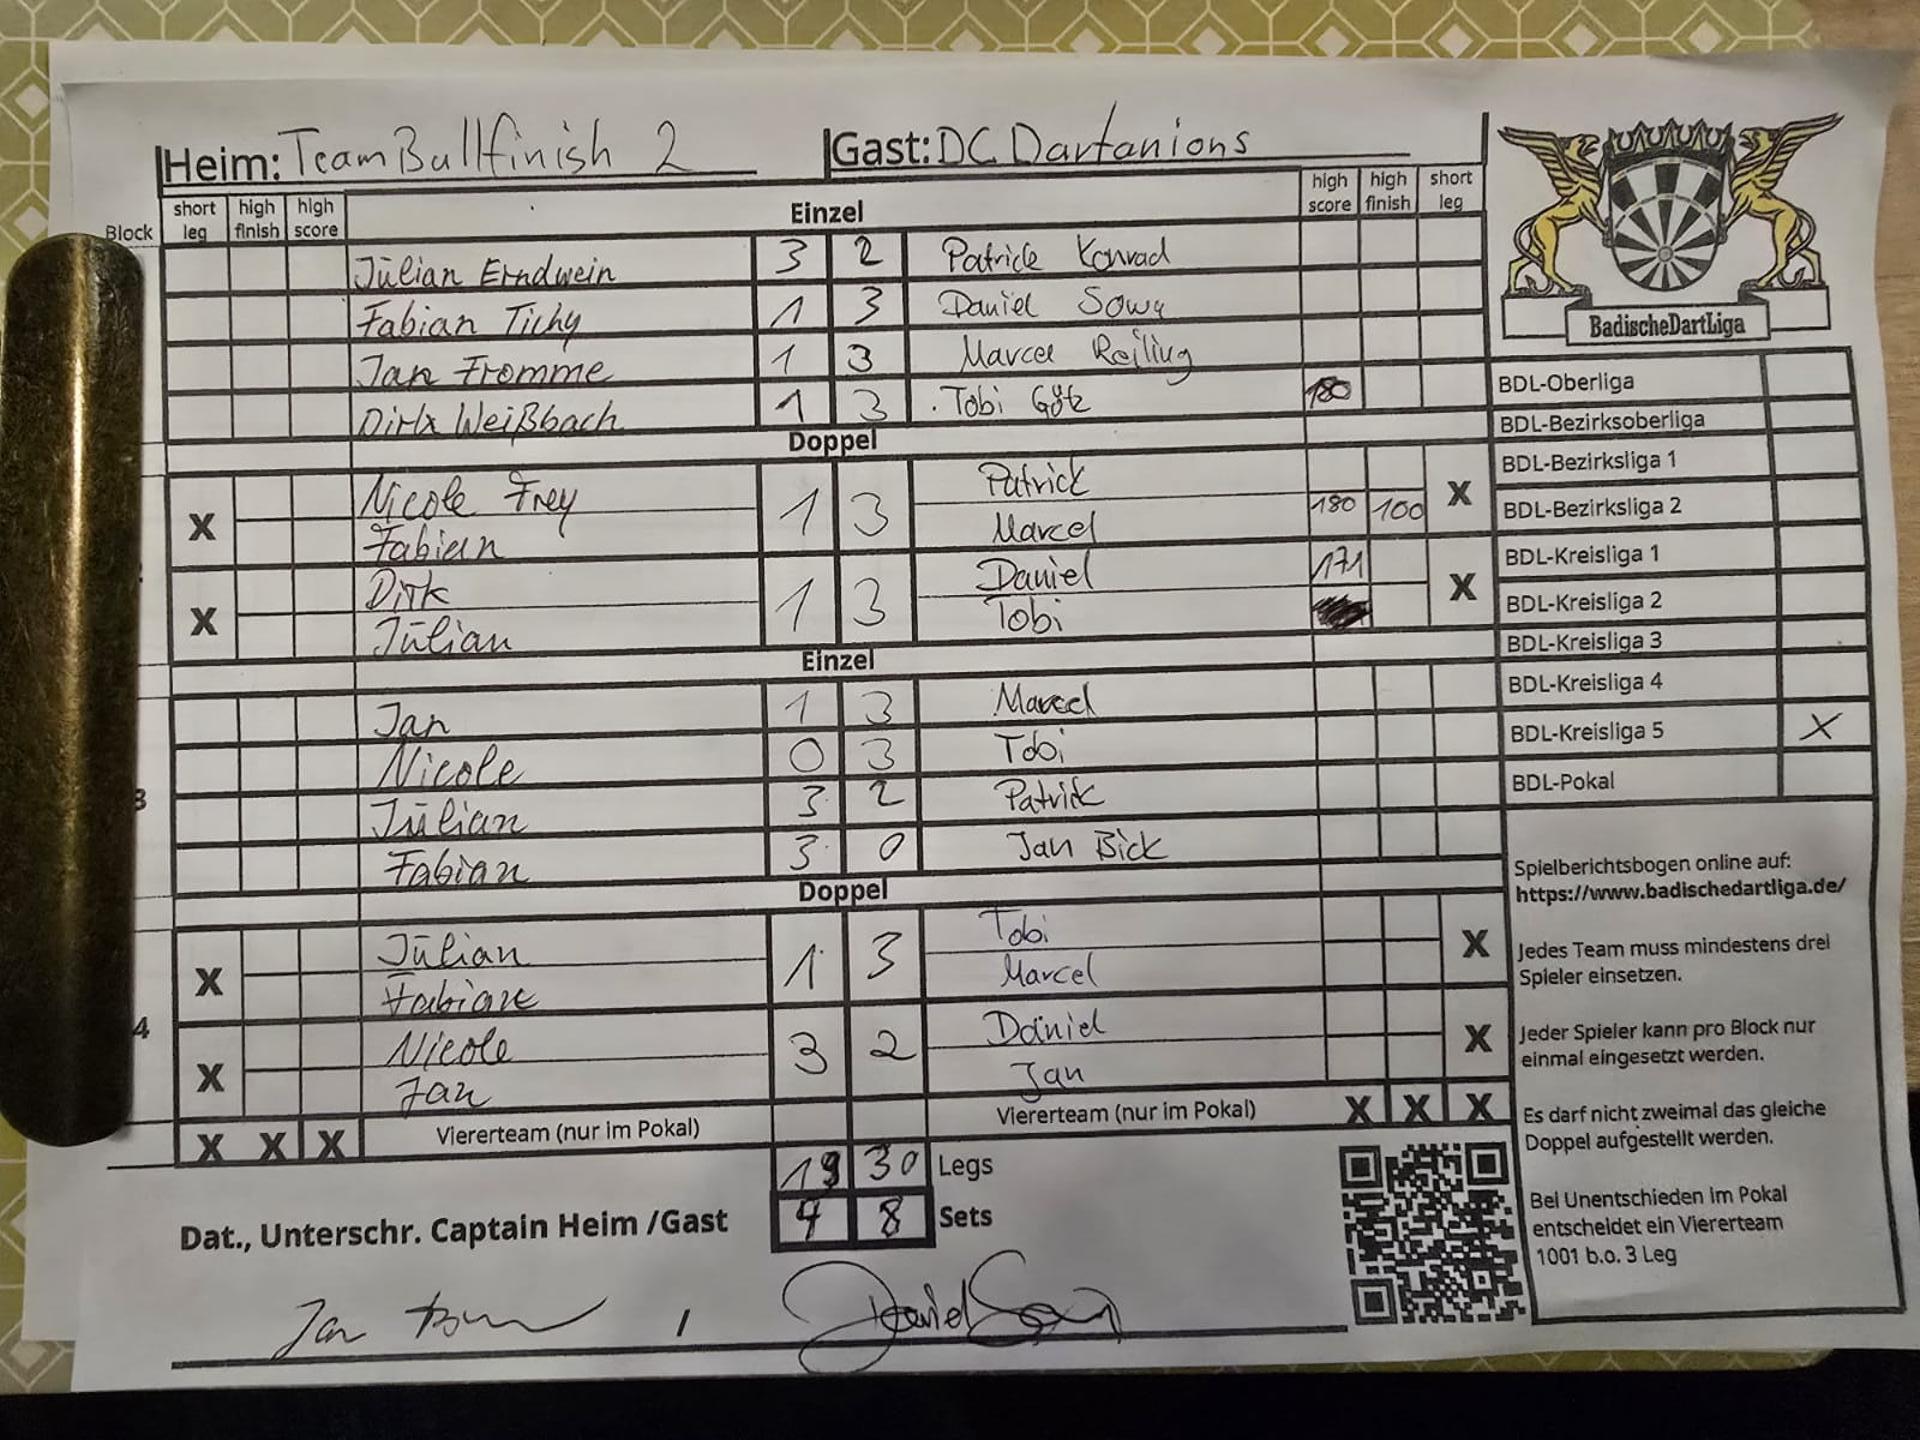 Heim: Team Bullfinish 2 Gast: DC Dartanions
Block short leg high finish high score Einzel high score high finish short leg
Julian Erndwein 3 2 Patrick Konrad
Fabian Tichy 1 3 Daniel Sowa
Jan Fromme 1 3 Marcel Reiling
Dirk Weißbach 1 3 Tobi Götz 180
Doppel
X Nicole Frey 1 3 Patrick X
Fabian Marcel 180 100
X Dirk 1 3 Daniel 171 X
Julian Tobi
Einzel
Jan 1 3 Marcel
Nicole 0 3 Tobi
3 Julian 3 2 Patrick
Fabian 3 0 Jan Bick
Doppel
X Julian 1 3 Tobi X
Fabian Marcel
4
X Nicole 3 2 Daniel X
Jan Jan
X X X Viererteam (nur im Pokal) Viererteam (nur im Pokal) X X X
19 30 Legs
Dat., Unterschr. Captain Heim /Gast 4 8 Sets
Jan /
BadischeDartLiga
BDL-Oberliga
BDL-Bezirksoberliga
BDL-Bezirksliga 1
BDL-Bezirksliga 2
BDL-Kreisliga 1
BDL-Kreisliga 2
BDL-Kreisliga 3
BDL-Kreisliga 4
BDL-Kreisliga 5 X
BDL-Pokal
Spielberichtsbogen online auf:
https://www.badischedartliga.de/
Jedes Team muss mindestens drei
Spieler einsetzen.
Jeder Spieler kann pro Block nur
einmal eingesetzt werden.
Es darf nicht zweimal das gleiche
Doppel aufgestellt werden.
Bei Unentschieden im Pokal
entscheidet ein Viererteam
1001 b.o. 3 Leg